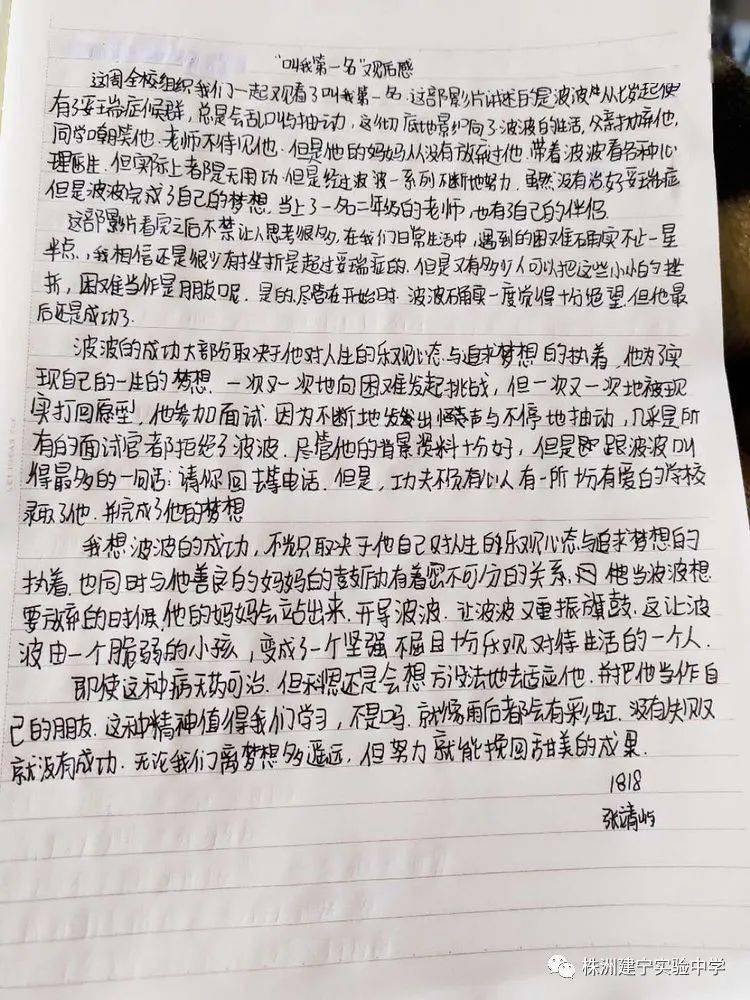 “叫我第一名”观后感
这周全校组织我们一起观看了叫我第一名.这部影片讲述的是波波从七岁起便
有了妥瑞症候群,总是会乱叫抽动,这彻底地影响了波波的生活,父亲抛弃他,
同学嘲笑他.老师不待见他.但是他的妈妈从没有放弃过他.带着波波看各种心
理医生.但实际上都是无用功.但是经过波波一系列不断地努力.虽然没有治好妥瑞症
但是波波完成了自己的梦想.当上了一名二年级的老师,也有了自己的伴侣.
这部影片看完之后不禁让人思考很多,在我们日常生活中,遇到的困难确实不止一星
半点,我相信还是很少有挫折是超过妥瑞症的.但是又有多少人可以把这些小小的挫
折,困难当作是朋友呢.是的.尽管在开始时.波波确实一度觉得十分绝望.但他最
后还是成功了.
波波的成功大部分取决于他对人生的乐观心态与追求梦想的执着,他为了实
现自己的一生的梦想.一次又一次地向困难发起挑战,但一次又一次地被现
实打回原型.他参加面试.因为不断地发出怪声与不停地抽动,几乎是所
有的面试官都拒绝了波波.尽管他的背景资料十分好,但是跟波波叫
得最多的一句话:请你回去等电话.但是,功夫不负有心人有一所十分有爱的学校
录取了他.并完成了他的梦想
我想波波的成功,不光只取决于他自己对人生的乐观心态与追求梦想的
执着.也同时与他善良的妈妈的鼓励有着密不可分的关系.他当波波想
要放弃的时候.他的妈妈会站出来.开导波波.让波波又重振旗鼓.这让波
波由一个脆弱的小孩,变成了一个坚强不屈且十分乐观对待生活的一个人.
即使这种病无药可治.但科恩还是会想方没法地去适应他.并把他当作自
己的朋友.这种精神值得我们学习,不是吗.就像雨后都会有彩虹.没有失败
就没有成功.无论我们离梦想多遥远,但努力就能挽回甜美的成果.
1818
张靖屿
株洲建宁实验中学